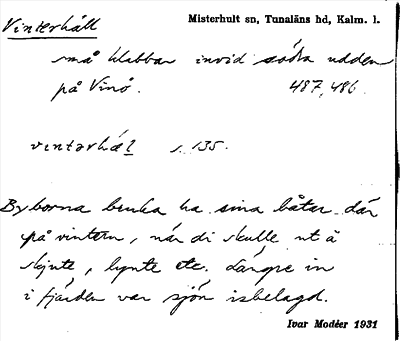 Vinterhäll
Misterhult sn, Tunaläns hd, Kalm. l.
små klabbar invid södra udden
på Vinö. 487,486
vintərhál s. 135.
Byborna bruka ha sina båtar där
på vintern, när di skulle ut å
skjute, lynte etc. Längre in
i fjärden var sjön isbelagd.
Ivar Modéer 1931